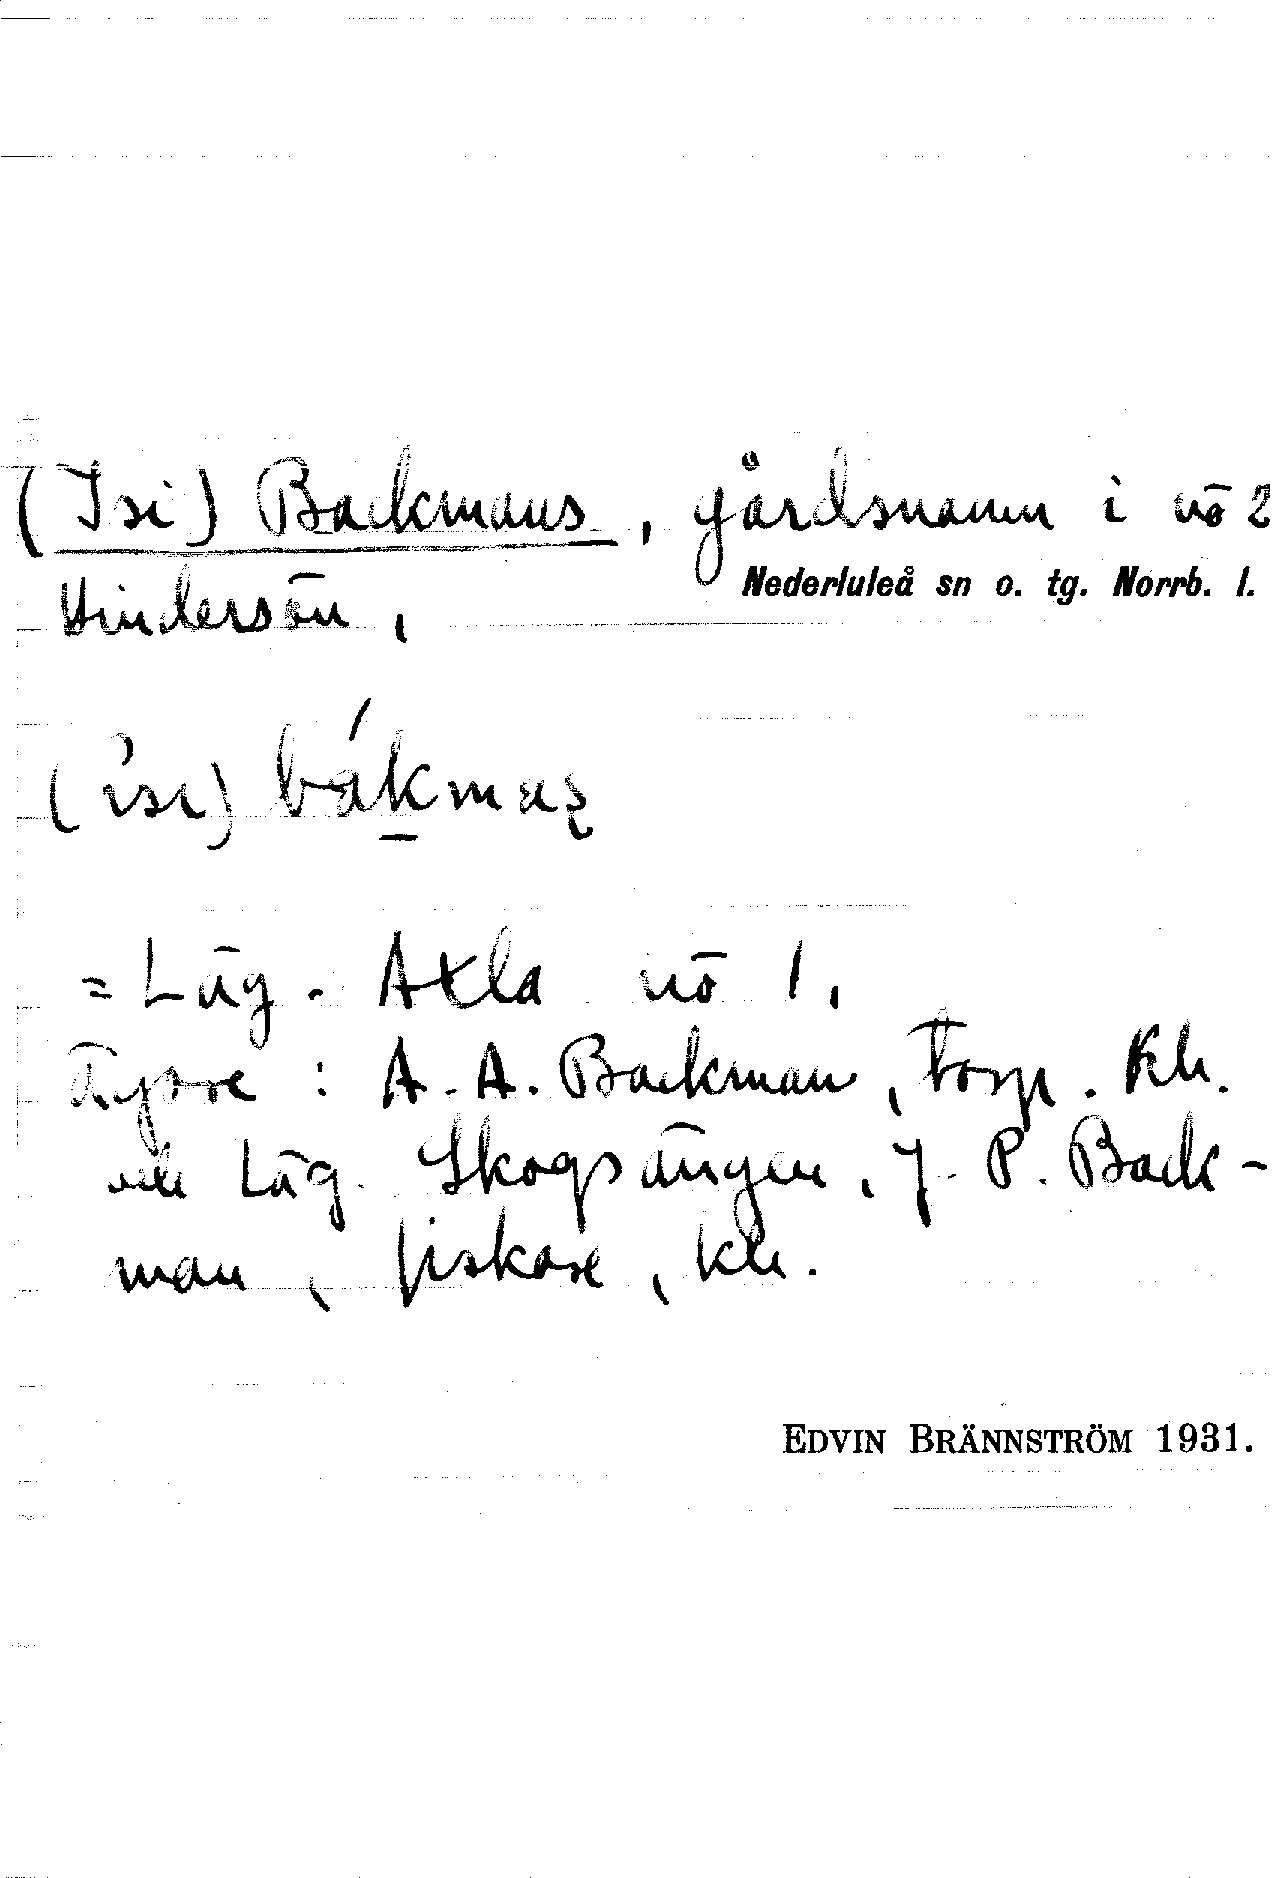 (Isi) Backmans, gårdsnamn i nö 2
Nederluleå sn o. tg. Norrb. l.
Hindersön,
(isi) bákmaṣ
= Läg. Axla nö 1,
Ägare: A. A. Backman, torp. Kh.
och Läg. Skogsängen, J. P. Back-
man, fiskare, kh.
EDVIN BRÄNNSTRÖM 1931.